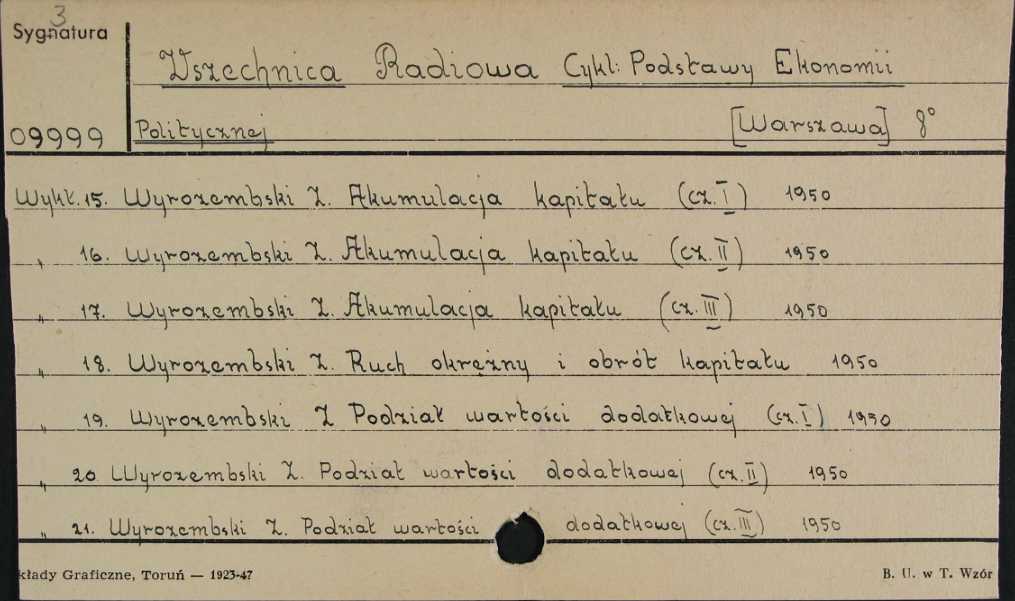 3
Sygnatura
Wszechnica Radiowa Cykl: Podstawy Ekonomii
09999 Politycznej [Warszawa] 8°
Wykł. 15. Wyrozembski Z. Akumulacja kapitału (cz. I) 1950
„ 16. Wyrozembski Z. Akumulacja kapitału (cz. II) 1950
„ 17. Wyrozembski Z. Akumulacja kapitału (cz. III) 1950
„ 18. Wyrozembski Z. Ruch okrężny i obrót kapitału 1950
„ 19. Wyrozembski Z Podział wartości dodatkowej (cz. I) 1950
„ 20 Wyrozembski Z. Podział wartości dodatkowej (cz. II) 1950
„ 21. Wyrozembski Z. Podział wartości dodatkowej (cz. III) 1950
kłady Graficzne, Toruń — 1923-47 B. U. w T. Wzór